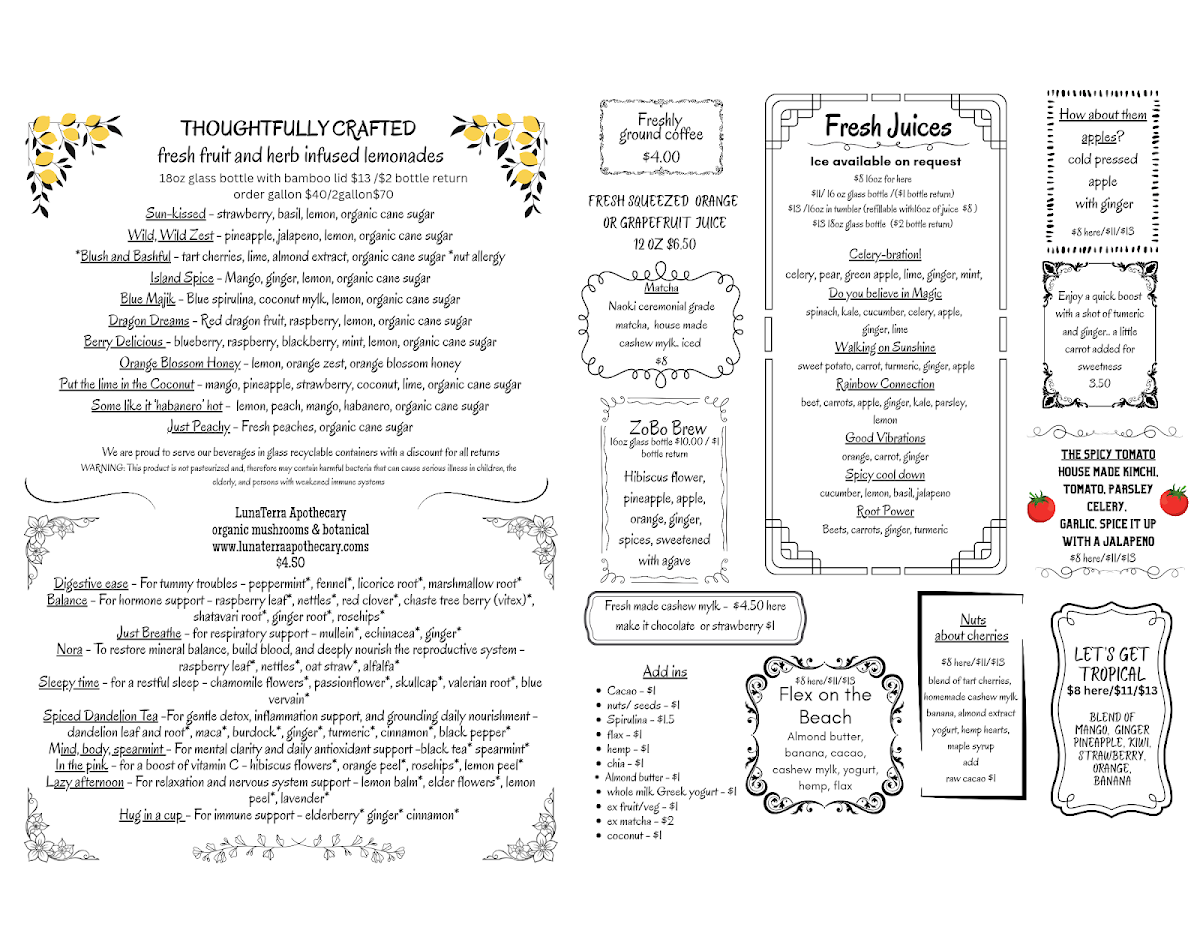 THOUGHTFULLY CRAFTED
fresh fruit and herb infused lemonades
18oz glass bottle with bamboo lid $13 /$2 bottle return
order gallon $40/2gallon$70
Sun-kissed - strawberry, basil, lemon, organic cane sugar
Wild, Wild Zest - pineapple, jalapeno, lemon, organic cane sugar
*Blush and Bashful - tart cherries, lime, almond extract, organic cane sugar *nut allergy
Island Spice - Mango, ginger, lemon, organic cane sugar
Blue Majik - Blue spirulina, coconut mylk, lemon, organic cane sugar
Dragon Dreams - Red dragon fruit, raspberry, lemon, organic cane sugar
Berry Delicious - blueberry, raspberry, blackberry, mint, lemon, organic cane sugar
Orange Blossom Honey - lemon, orange zest, orange blossom honey
Put the lime in the Coconut - mango, pineapple, strawberry, coconut, lime, organic cane sugar
Some like it 'habanero' hot - lemon, peach, mango, habanero, organic cane sugar
Just Peachy - Fresh peaches, organic cane sugar
We are proud to serve our beverages in glass recyclable containers with a discount for all returns
WARNING: This product is not pasteurized and, therefore may contain harmful bacteria that can cause serious illness in children, the
elderly, and persons with weakened immune systems
LunaTerra Apothecary
organic mushrooms & botanical
www.lunaterraapothecary.coms
$4.50
Digestive ease - For tummy troubles - peppermint*, fennel*, licorice root*, marshmallow root*
Balance - For hormone support - raspberry leaf*, nettles*, red clover*, chaste tree berry (vitex)*,
shatavari root*, ginger root*, rosehips*
Just Breathe - for respiratory support - mullein*, echinacea*, ginger*
Nora - To restore mineral balance, build blood, and deeply nourish the reproductive system -
raspberry leaf*, nettles*, oat straw*, alfalfa*
Sleepy time - for a restful sleep - chamomile flowers*, passionflower*, skullcap*, valerian root*, blue
vervain*
Spiced Dandelion Tea -For gentle detox, inflammation support, and grounding daily nourishment -
dandelion leaf and root*, maca*, burdock.*, ginger*, turmeric*, cinnamon*, black pepper*
Mind, body, spearmint - For mental clarity and daily antioxidant support -black tea* spearmint*
In the pink - for a boost of vitamin C - hibiscus flowers*, orange peel*, rosehips*, lemon peel*
Lazy afternoon - For relaxation and nervous system support - lemon balm*, elder flowers*, lemon
peel*, lavender*
Hug in a cup - For immune support - elderberry* ginger* cinnamon*
Freshly
ground coffee
$4.00
FRESH SQUEEZED ORANGE
OR GRAPEFRUIT JUICE
12 OZ $6.50
Matcha
Naoki ceremonial grade
matcha, house made
cashew mylk.. iced
$8
ZoBo Brew
16oz glass bottle $10.00 / $1
bottle return
Hibiscus flower,
pineapple, apple,
orange, ginger,
spices, sweetened
with agave
Fresh made cashew mylk - $4.50 here
make it chocolate or strawberry $1
Add ins
• Cacao - $1
• nuts/ seeds - $1
• Spirulina - $1.5
• flax - $1
• hemp - $1
• chia - $1
• Almond butter - $1
• whole milk Greek yogurt - $1
• ex fruit/veg - $1
• ex matcha - $2
• coconut - $1
Fresh Juices
Ice available on request
$8 16oz for here
$11/ 16 oz glass bottle /($1 bottle return)
$13 /16oz in tumbler (refillable with16oz of juice $8 )
$13 18oz glass bottle ($2 bottle return)
Celery-bration!
celery, pear, green apple, lime, ginger, mint,
Do you believe in Magic
spinach, kale, cucumber, celery, apple,
ginger, lime
Walking on Sunshine
sweet potato, carrot, turmeric, ginger, apple
Rainbow Connection
beet, carrots, apple, ginger, kale, parsley,
lemon
Good Vibrations
orange, carrot, ginger
Spicy cool down
cucumber, lemon, basil, jalapeno
Root Power
Beets, carrots, ginger, turmeric
$8 here/$11/$13
Flex on the
Beach
Almond butter,
banana, cacao,
cashew mylk, yogurt,
hemp, flax
Nuts
about cherries
$8 here/$11/$13
blend of tart cherries,
homemade cashew mylk
banana, almond extract
yogurt, hemp hearts,
maple syrup
add
raw cacao $1
How about them
apples?
cold pressed
apple
with ginger
$8 here/$11/$13
Enjoy a quick boost
with a shot of tumeric
and ginger.. a little
carrot added for
sweetness
3.50
THE SPICY TOMATO
HOUSE MADE KIMCHI,
TOMATO, PARSLEY
CELERY,
GARLIC. SPICE IT UP
WITH A JALAPENO
$8 here/$11/$13
LET'S GET
TROPICAL
$8 here/$11/$13
BLEND OF
MANGO, GINGER
PINEAPPLE, KIWI,
STRAWBERRY,
ORANGE,
BANANA